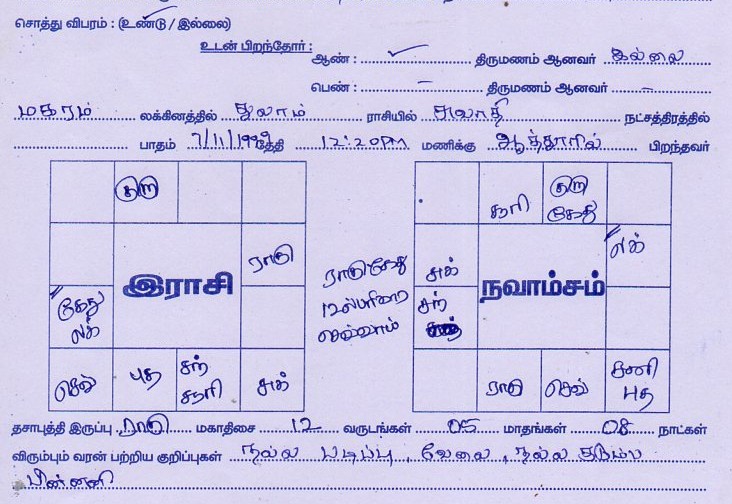 சொத்து விபரம் : (உண்டு / இல்லை)
உடன் பிறந்தோர் :
ஆண் : ........ திருமணம் ஆனவர் இல்லை
பெண் : - திருமணம் ஆனவர் -
மகரம் லக்கினத்தில் துலாம் ராசியில் சுவாதி நட்சத்திரத்தில்
பாதம் 7/11/1999 தேதி 12:20PM மணிக்கு ஆத்தூரில் பிறந்தவர்
குரு
சூரி குரு கேது
ராகு
லக்
ராகு கேது
சுக்
இராசி
நவாம்சம்
கேது லக்
செவ்வாய்
சந்
செவ் புத சந் சூரி சுக்
ராகு செவ் சனி புத
தசாபுத்தி இருப்பு ராகு மகாதிசை 12 வருடங்கள் 05 மாதங்கள் 08 நாட்கள்
விரும்பும் வரன் பற்றிய குறிப்புகள் நல்ல படிப்பு, வேலை, நல்ல குடும்ப
பின்னணி